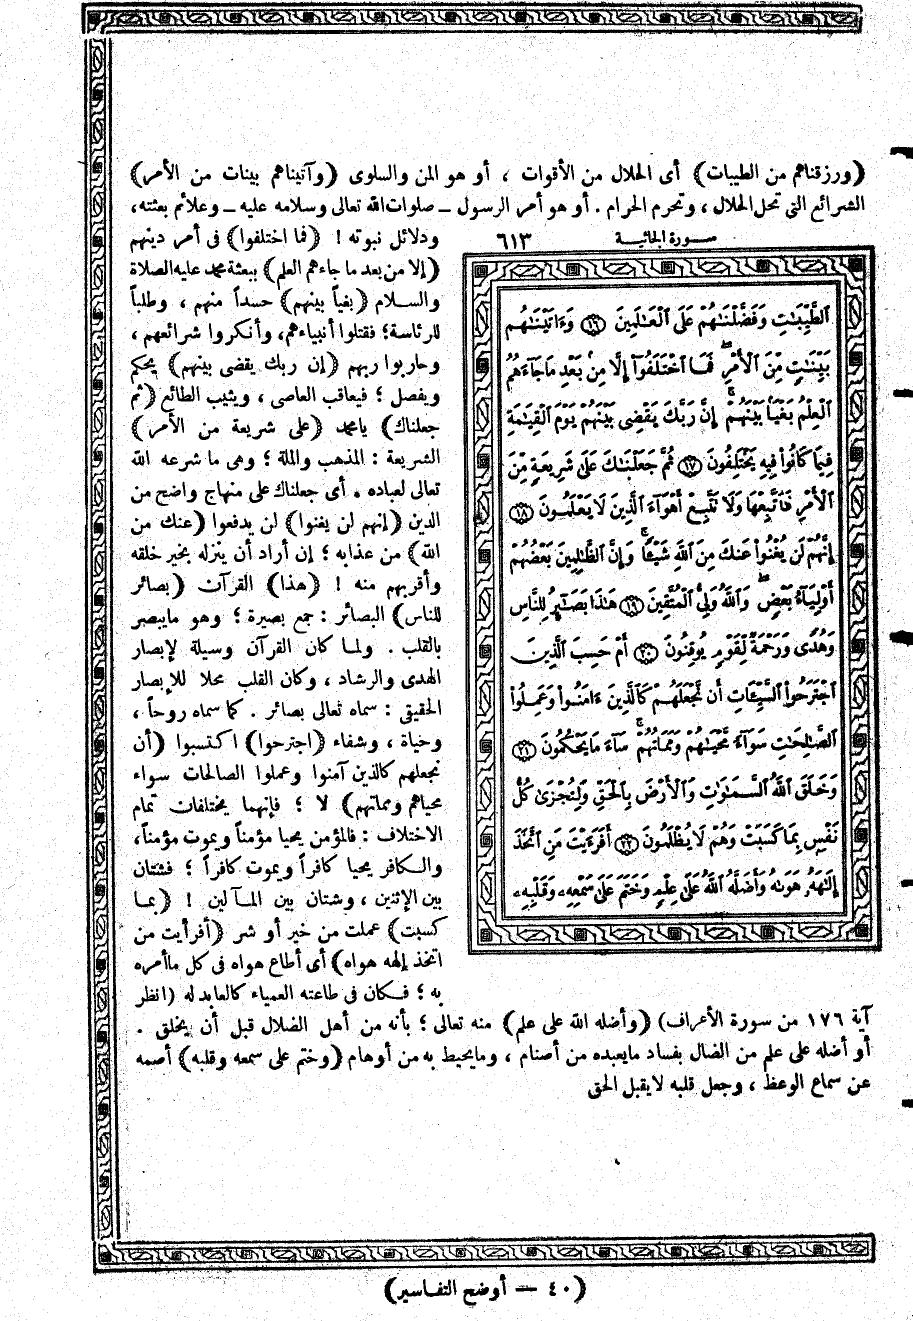 (ورزقناهم من الطيبات) أى الحلال من الأقوات ، أو هو المن والسلوى (وآتيناهم بينات من الأمر)
الشرائع التى تحل الحلال ، وتحرم الحرام . أو هو أمر الرسول ــ صلوات الله تعالى وسلامه عليه ــ وعلائم بعثته،
ودلائل نبوته ! (فما اختلفوا) فى أمر دينهم
(إلا من بعد ما جاءهم العلم) ببعثة محمد عليه الصلاة
والسلام (بغياً بينهم) حسداً منهم ، وطلباً
للرئاسة؛ فقتلوا أنبياءهم، وأنكروا شرائعهم ،
وحاربوا ربهم (إن ربك يقضى بينهم) يحكم
ويفصل ؛ فيعاقب العاصى ، ويثيب الطائع (ثم
جعلناك) يامحمد (على شريعة من الأمر)
الشريعة : المذهب والملة ؛ وهى ما شرعه الله
تعالى لعباده . أى جعلناك على منهاج واضح من
الدين (إنهم لن يغنوا) لن يدفعوا (عنك من
الله) من عذابه ؛ إن أراد أن ينزله بخير خلقه
وأقربهم منه ! (هذا) القرآن (بصائر
للناس) البصائر : جمع بصيرة ؛ وهو مايبصر
بالقلب . ولما كان القرآن وسيلة لإبصار
الهدى والرشاد ، وكان القلب محلا للإبصار
الحقيقى : سماه تعالى بصائر . كما سماه روحاً ،
وحياة ، وشفاء (اجترحوا) اكتسبوا (أن
نجعلهم كالذين آمنوا وعملوا الصالحات سواء
محياهم ومماتهم) لا ؛ فإنهما يختلفات تمام
الاختلاف : فالمؤمن يحيا مؤمناً ويموت مؤمناً،
والكافر يحيا كافراً ويموت كافراً ؛ فشتان
بين الإثنين ، وشتان بين المآلين ! (بما
كسبت) عملت من خير أو شر (أفرأيت من
اتخذ إلهه هواه) أى أطاع هواه فى كل ماأمره
به ؛ فكان فى طاعته العمياء كالعابد له (انظر
آية ١٧٦ من سورة الأعراف) (وأضله الله على علم) منه تعالى ؛ بأنه من أهل الضلال قبل أن يخلق .
أو أضله على علم من الضال بفساد مايعبده من أصنام ، ومايحيط به من أوهام (وختم على سمعه وقلبه) أصمه
عن سماع الوعظ ، وجعل قلبه لايقبل الحق
سورة الجاثية ٦١٣
ٱلطَّيِّبَٰتِ وَفَضَّلْنَٰهُمْ عَلَى ٱلْعَٰلَمِينَ ١٦ وَءَاتَيْنَٰهُم
بَيِّنَٰتٍ مِّنَ ٱلْأَمْرِ ۖ فَمَا ٱخْتَلَفُوٓا۟ إِلَّا مِنۢ بَعْدِ مَا جَآءَهُمُ
ٱلْعِلْمُ بَغْيًۢا بَيْنَهُمْ ۚ إِنَّ رَبَّكَ يَقْضِى بَيْنَهُمْ يَوْمَ ٱلْقِيَٰمَةِ
فِيمَا كَانُوا۟ فِيهِ يَخْتَلِفُونَ ١٧ ثُمَّ جَعَلْنَٰكَ عَلَىٰ شَرِيعَةٍ مِّنَ
ٱلْأَمْرِ فَٱتَّبِعْهَا وَلَا تَتَّبِعْ أَهْوَآءَ ٱلَّذِينَ لَا يَعْلَمُونَ ١٨
إِنَّهُمْ لَن يُغْنُوا۟ عَنكَ مِنَ ٱللَّهِ شَيْـًٔا ۚ وَإِنَّ ٱلظَّٰلِمِينَ بَعْضُهُمْ
أَوْلِيَآءُ بَعْضٍ ۖ وَٱللَّهُ وَلِىُّ ٱلْمُتَّقِينَ ١٩ هَٰذَا بَصَٰٓئِرُ لِلنَّاسِ
وَهُدًى وَرَحْمَةٌ لِّقَوْمٍ يُوقِنُونَ ٢٠ أَمْ حَسِبَ ٱلَّذِينَ
ٱجْتَرَحُوا۟ ٱلسَّيِّـَٔاتِ أَن نَّجْعَلَهُمْ كَٱلَّذِينَ ءَامَنُوا۟ وَعَمِلُوا۟
ٱلصَّٰلِحَٰتِ سَوَآءً مَّحْيَاهُمْ وَمَمَاتُهُمْ ۚ سَآءَ مَا يَحْكُمُونَ ٢١
وَخَلَقَ ٱللَّهُ ٱلسَّمَٰوَٰتِ وَٱلْأَرْضَ بِٱلْحَقِّ وَلِتُجْزَىٰ كُلُّ
نَفْسٍۭ بِمَا كَسَبَتْ وَهُمْ لَا يُظْلَمُونَ ٢٢ أَفَرَءَيْتَ مَنِ ٱتَّخَذَ
إِلَٰهَهُۥ هَوَىٰهُ وَأَضَلَّهُ ٱللَّهُ عَلَىٰ عِلْمٍ وَخَتَمَ عَلَىٰ سَمْعِهِۦ وَقَلْبِهِۦ
(٤٠ — أوضح التفاسير)